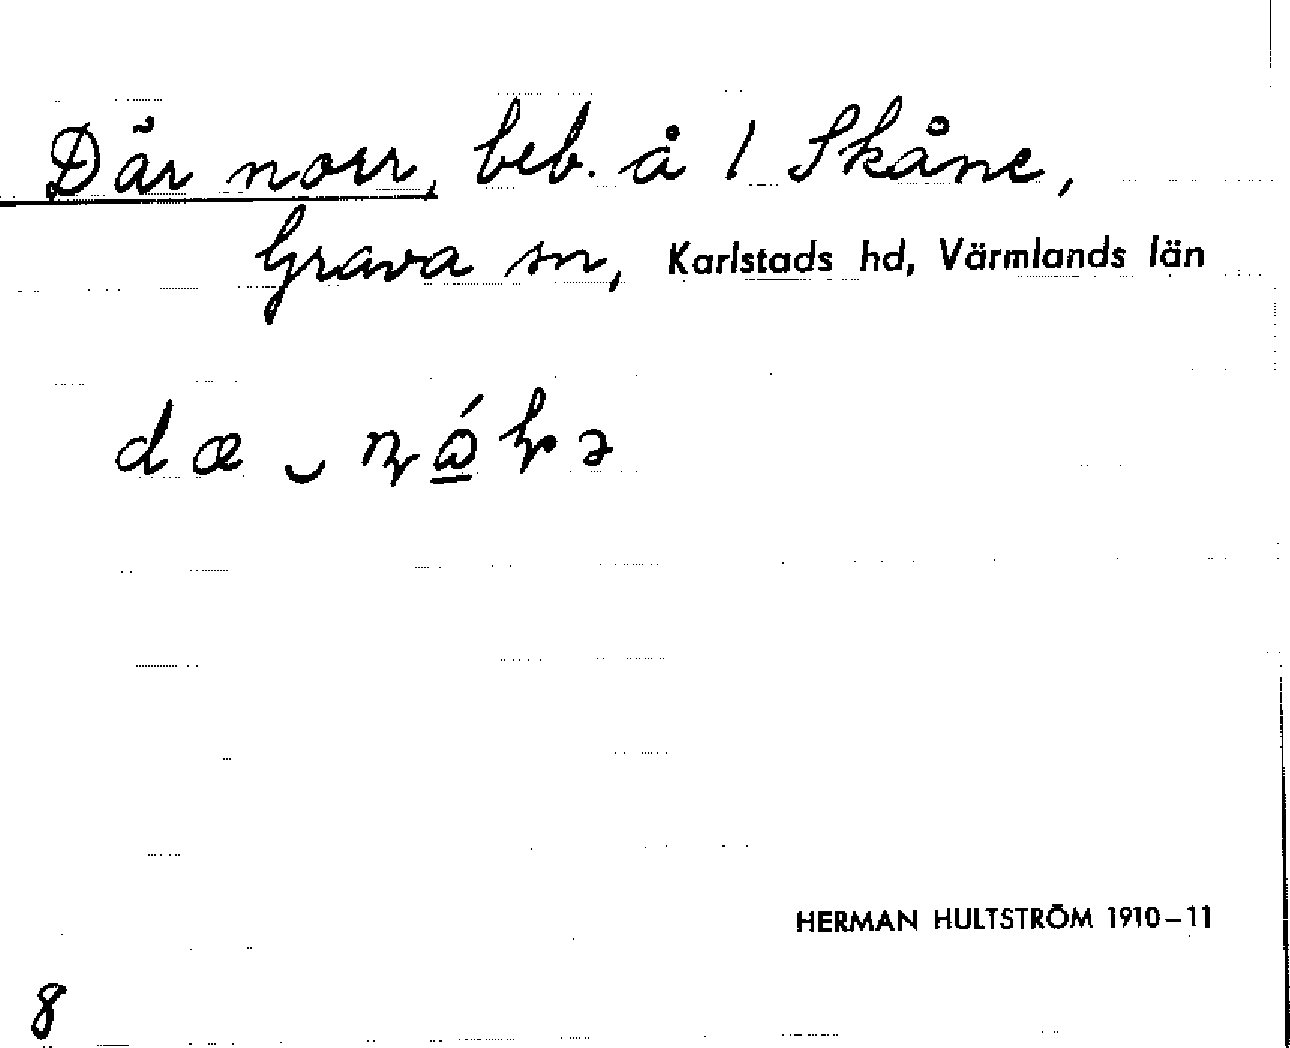 Där norr, beb. å 1 Skåne,
Grava sn, Karlstads hd, Värmlands län
HERMAN HULTSTRÖM 1910–11
8